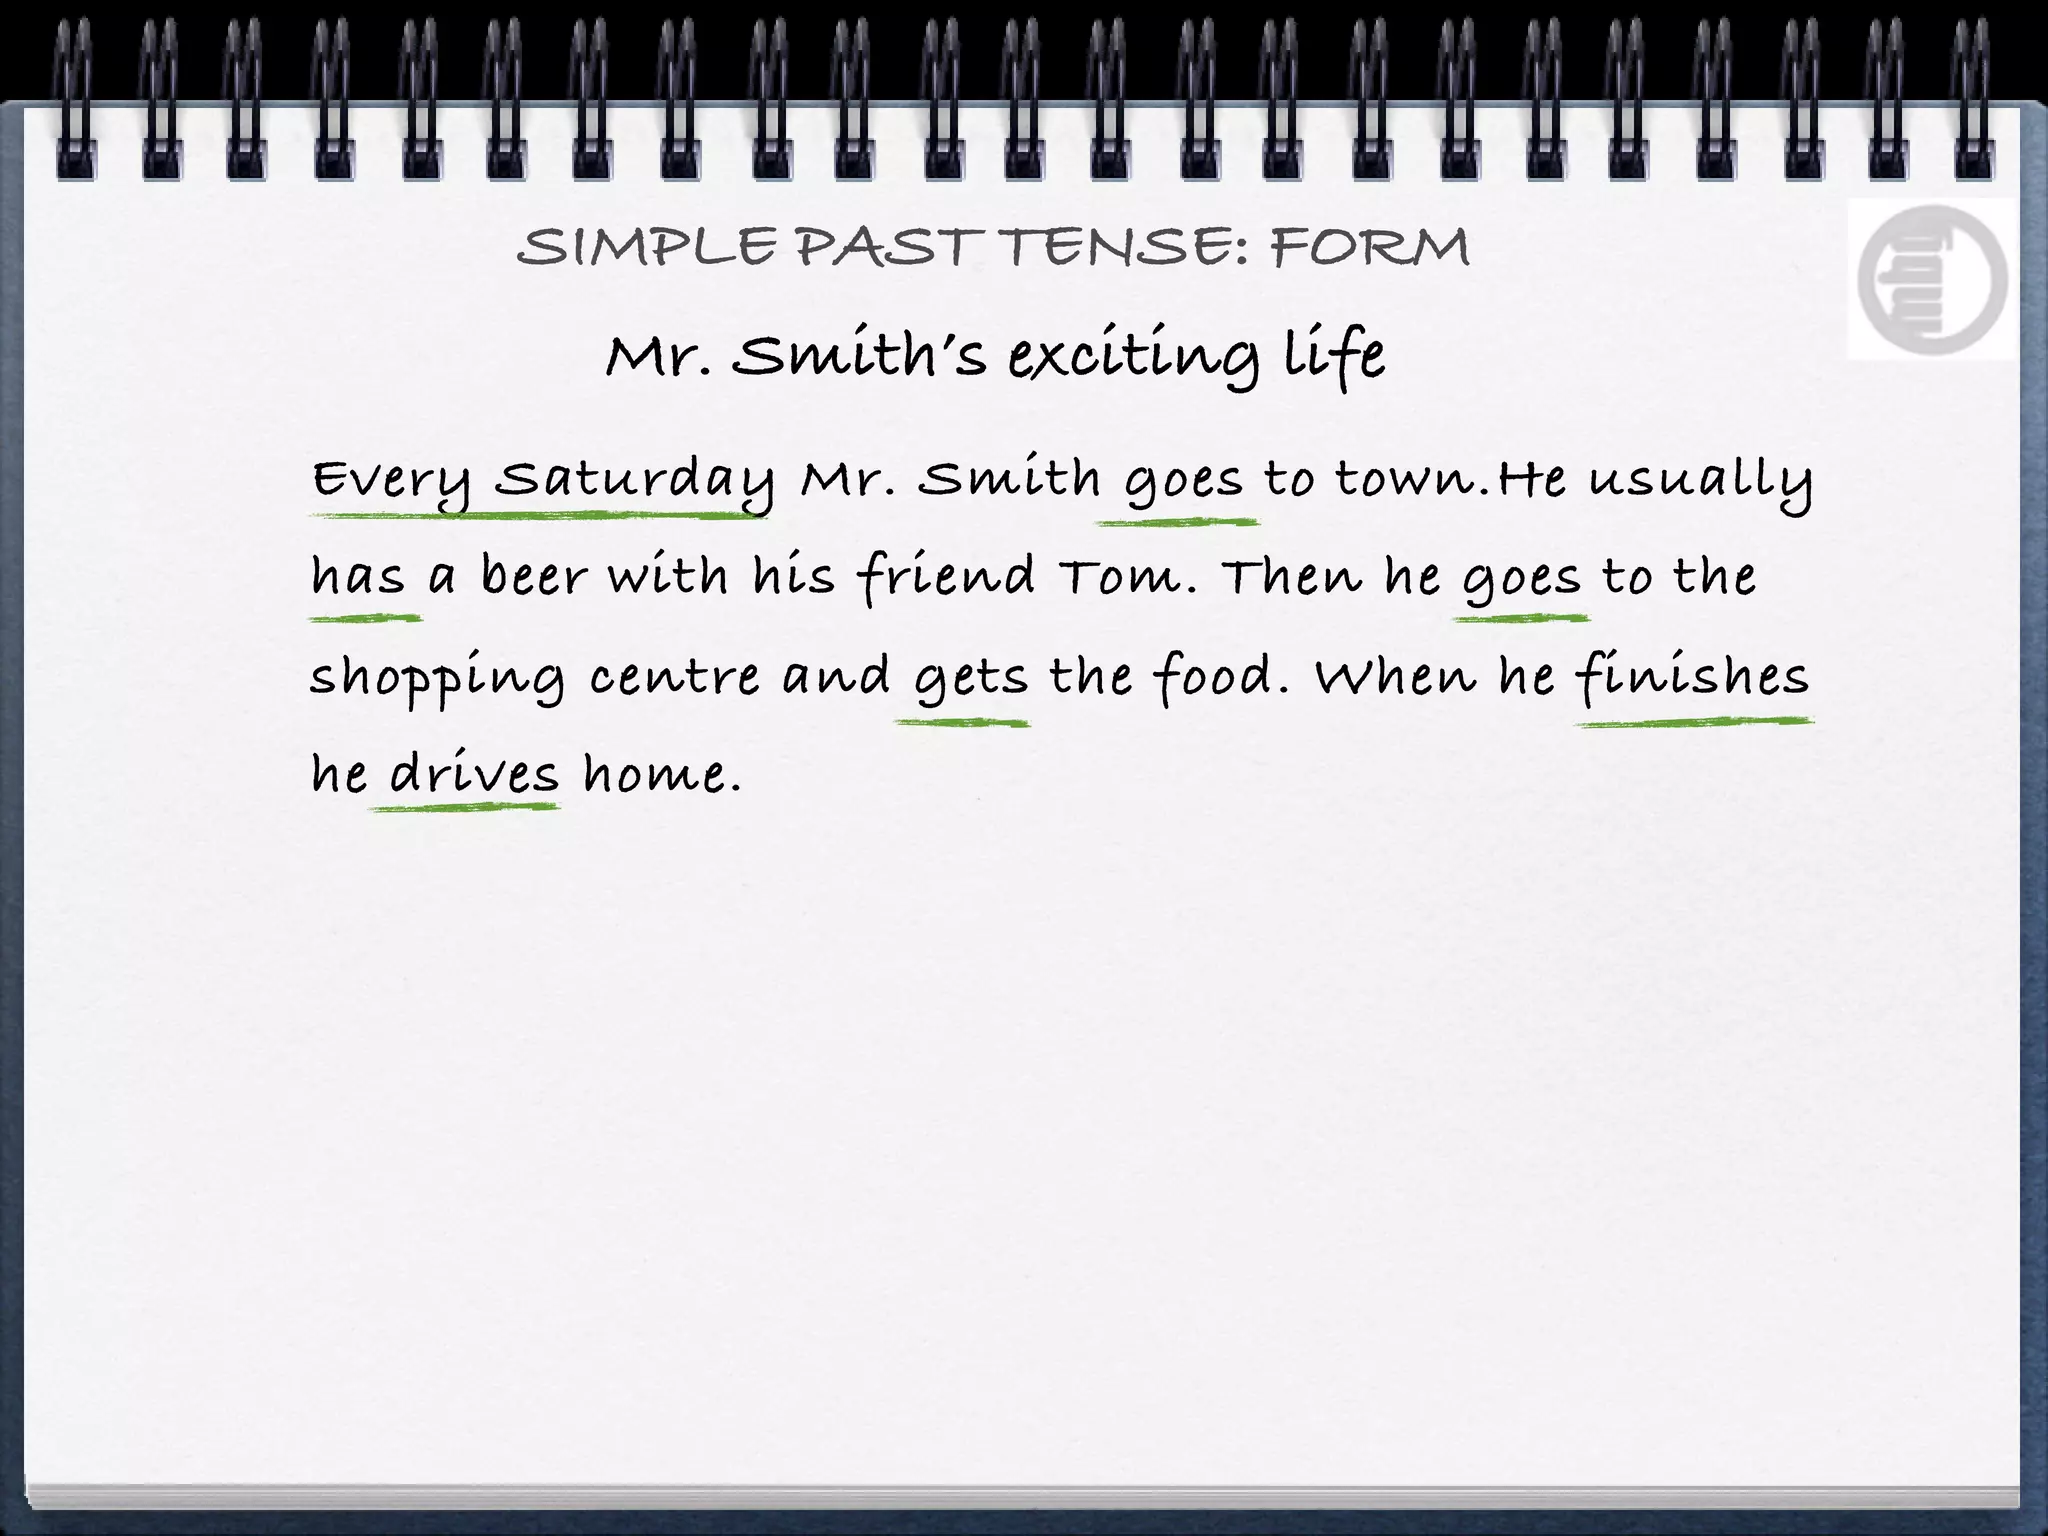 SIMPLE PAST TENSE: FORM
Mr. Smith's exciting life
Every Saturday Mr. Smith goes to town.He usually
has a beer with his friend Tom. Then he goes to the
shopping centre and gets the food. When he finishes
he drives home.